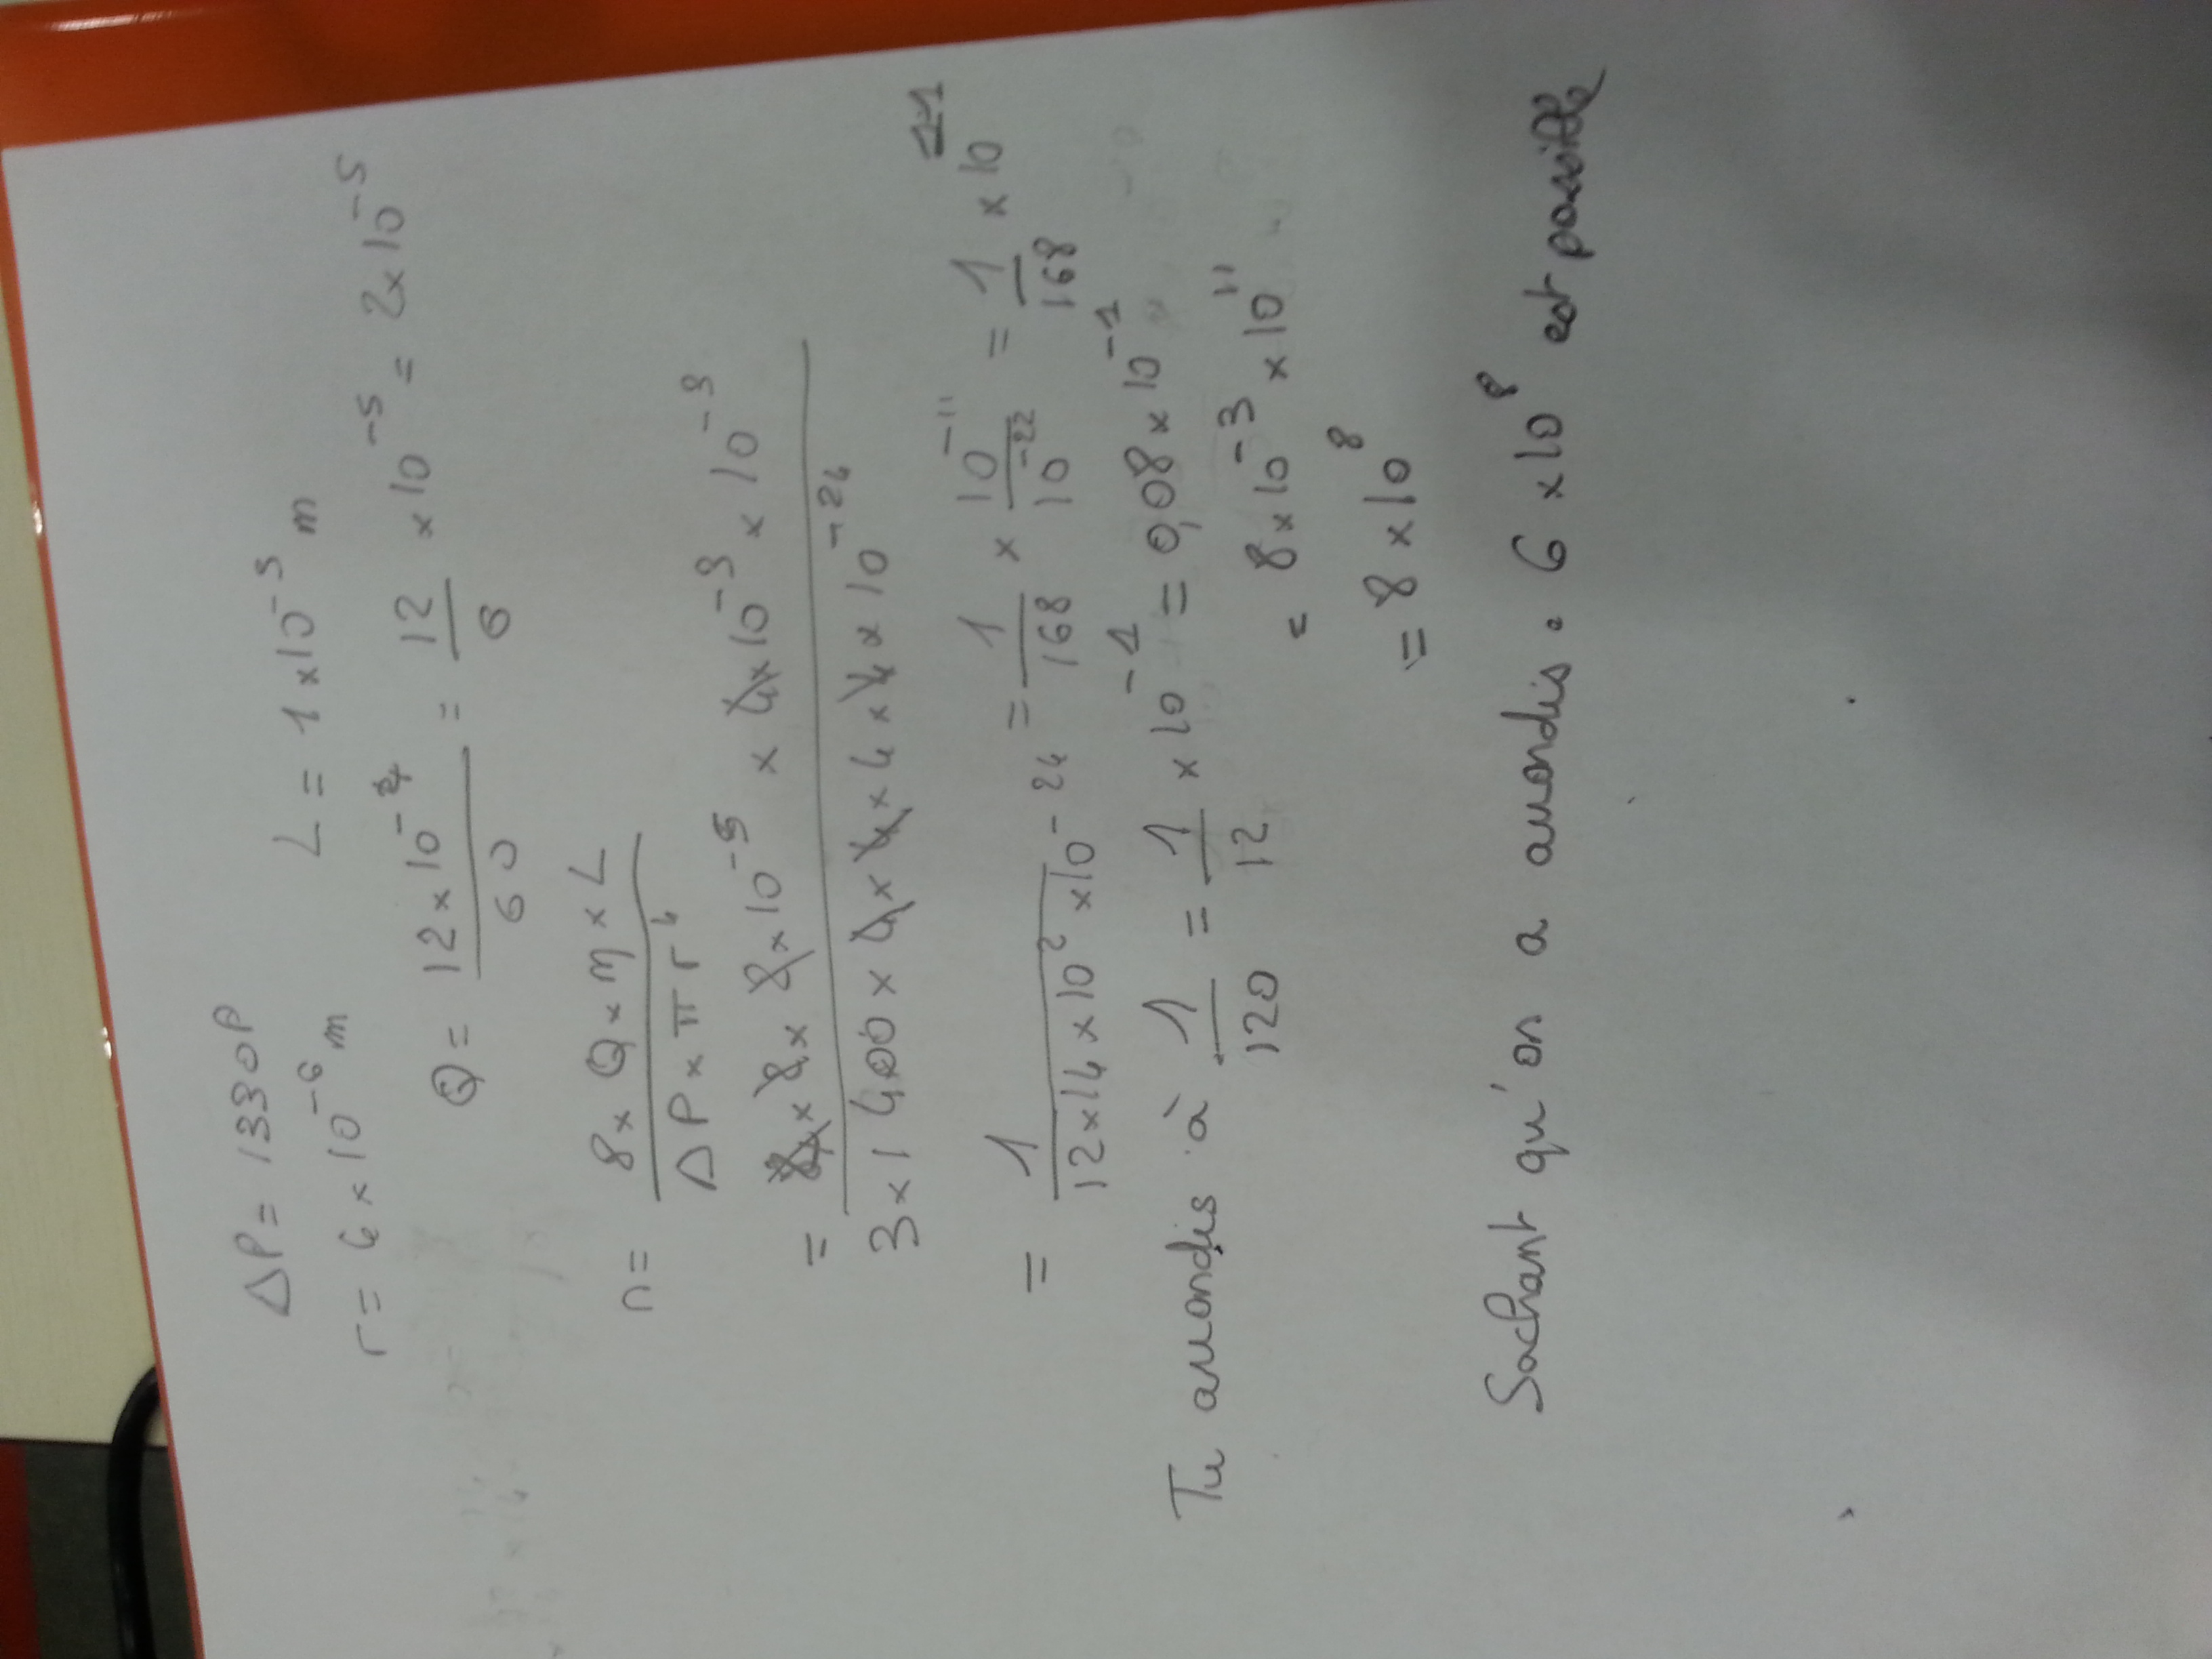 ΔP = 1330P
r = 4 × 10⁻⁶ m L = 1 × 10⁻³ m
Q = 12 × 10⁻⁴ / 60 = 12 / 6 × 10⁻⁵ = 2 × 10⁻⁵
n = 8 × Q × η × L / ΔP × π r⁴
= 8 × 8 × 10⁻⁵ × 4 × 10⁻³ × 10⁻³ / 3 × 1400 × 4 × 4 × 4 × 4 × 10⁻²⁴
= 1 / 12 × 14 × 10² × 10⁻²⁴ = 1 / 168 × 10⁻¹¹ / 10⁻²² = 1 / 168 × 10
Tu arrondis à 1 / 120 = 1 / 12 × 10⁻¹ = 0,08 × 10⁻¹
= 8 × 10⁻³ × 10¹¹
= 8 × 10⁸
Sachant qu'on a arrondis. 6 × 10⁸ est possible